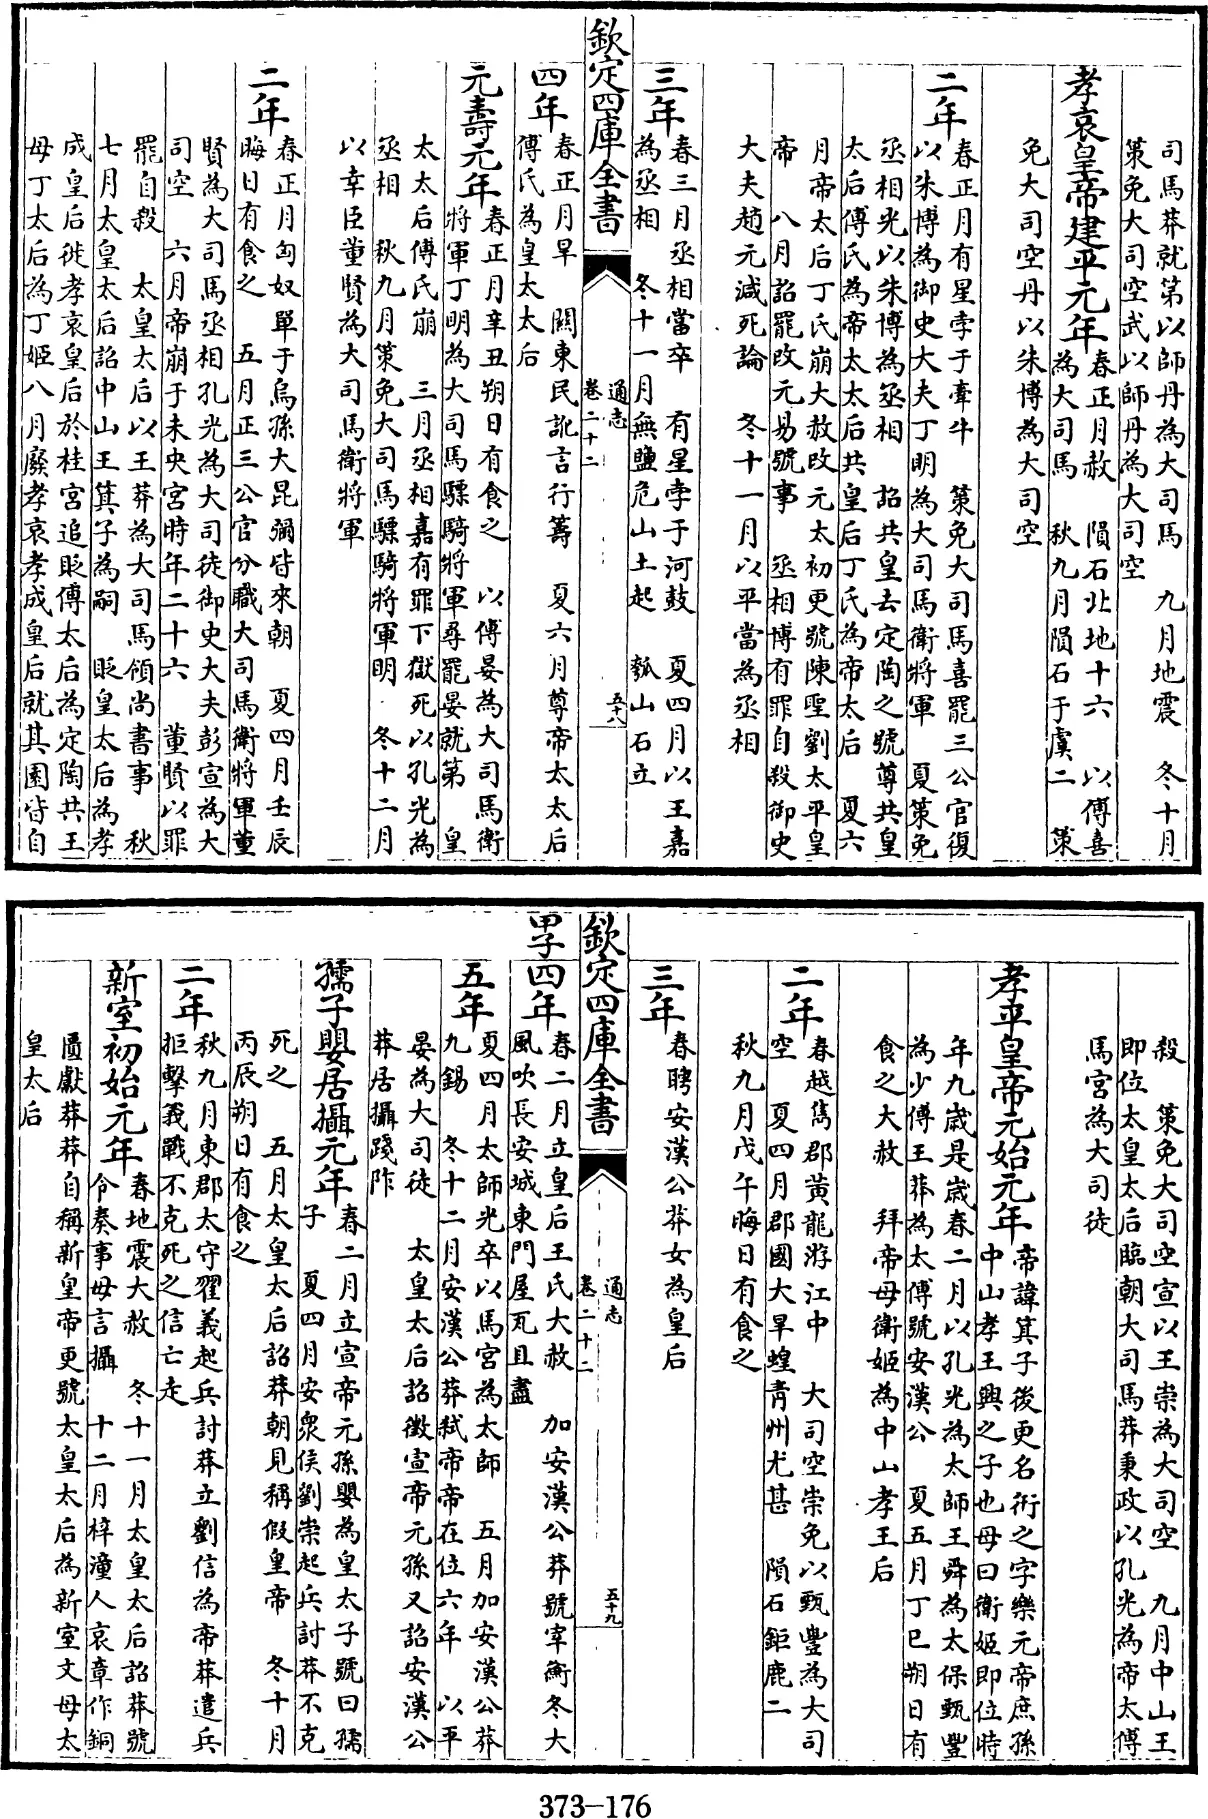 司馬莽就第以師丹為大司馬　九月地震　冬十月
策免大司空武以師丹為大司空
孝哀皇帝建平元年
春正月赦　隕石北地十六　以傅喜
為大司馬　秋九月隕石于虞二　策
免大司空丹以朱博為大司空
二年
春正月有星孛于牽牛　策免大司馬喜罷三公官復
以朱博為御史大夫丁明為大司馬衛將軍　夏策免
丞相光以朱博為丞相　詔共皇去定陶之號尊共皇
太后傅氏為帝太太后共皇后丁氏為帝太后　夏六
月帝太后丁氏崩大赦改元太初更號陳聖劉太平皇
帝　八月詔罷改元易號事　丞相博有罪自殺御史
大夫趙元減死論　冬十一月以平當為丞相
三年
春三月丞相當卒　有星孛于河鼓　夏四月以王嘉
為丞相　冬十一月無鹽危山土起　瓠山石立
欽定四庫全書
通志
卷二十二
五十八
四年
春正月旱　關東民訛言行籌　夏六月尊帝太太后
傅氏為皇太太后
元壽元年
春正月辛丑朔日有食之　以傅晏為大司馬衛
將軍丁明為大司馬驃騎將軍尋罷晏就第　皇
太太后傅氏崩　三月丞相嘉有罪下獄死以孔光為
丞相　秋九月策免大司馬驃騎將軍明　冬十二月
以幸臣董賢為大司馬衛將軍
二年
春正月匈奴單于烏孫大昆彌皆來朝　夏四月壬辰
晦日有食之　五月正三公官分職大司馬衛將軍董
賢為大司馬丞相孔光為大司徒御史大夫彭宣為大
司空　六月帝崩于未央宮時年二十六　董賢以罪
罷自殺　太皇太后以王莽為大司馬領尚書事　秋
七月太皇太后詔中山王箕子為嗣　貶皇太后為孝
成皇后徙孝哀皇后於桂宮追貶傅太后為定陶共王
母丁太后為丁姬八月廢孝哀孝成皇后就其園皆自
殺　策免大司空宣以王崇為大司空　九月中山王
即位太皇太后臨朝大司馬莽秉政以孔光為帝太傅
馬宮為大司徒
孝平皇帝元始元年
帝諱箕子後更名衎之字樂元帝庶孫
中山孝王興之子也母曰衛姬即位時
年九歲是歲春二月以孔光為太師王舜為太保甄豐
為少傅王莽為太傅號安漢公　夏五月丁巳朔日有
食之大赦　拜帝母衛姬為中山孝王后
二年
春越嶲郡黃龍游江中　大司空崇免以甄豐為大司
空　夏四月郡國大旱蝗青州尤甚　隕石鉅鹿二
秋九月戊午晦日有食之
三年
春聘安漢公莽女為皇后
欽定四庫全書
通志
卷二十二
五十九
甲子四年
春二月立皇后王氏大赦　加安漢公莽號宰衡冬大
風吹長安城東門屋瓦且盡
五年
夏四月太師光卒以馬宮為太師　五月加安漢公莽
九錫　冬十二月安漢公莽弒帝帝在位六年　以平
晏為大司徒　太皇太后詔徵宣帝元孫又詔安漢公
莽居攝踐阼
孺子嬰居攝元年
春二月立宣帝元孫嬰為皇太子號曰孺
子　夏四月安眾侯劉崇起兵討莽不克
死之　五月太皇太后詔莽朝見稱假皇帝　冬十月
丙辰朔日有食之
二年
秋九月東郡太守翟義起兵討莽立劉信為帝莽遣兵
拒擊義戰不克死之信亡走
新室初始元年
春地震大赦　冬十一月太皇太后詔莽號
令奏事毋言攝　十二月梓潼人哀章作銅
匱獻莽莽自稱新皇帝更號太皇太后為新室文母太
皇太后
373-176